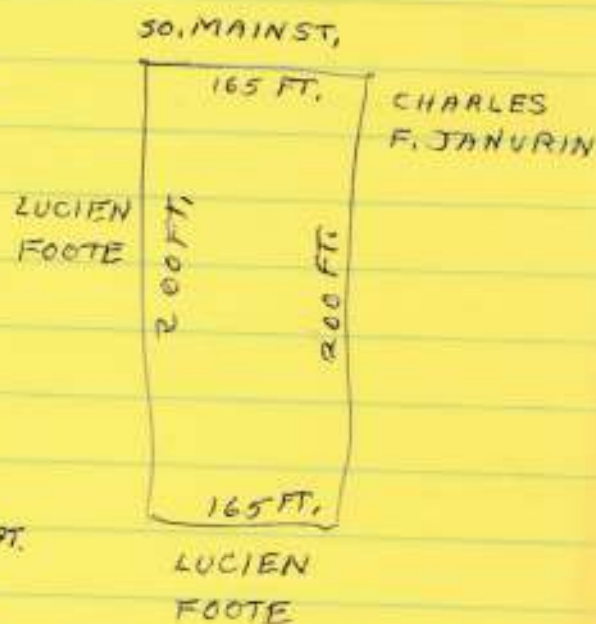 SO. MAIN ST.
165 FT.
CHARLES
F. JANURIN
LUCIEN
FOOTE
200 FT.
200 FT.
165 FT.
LUCIEN
FOOTE